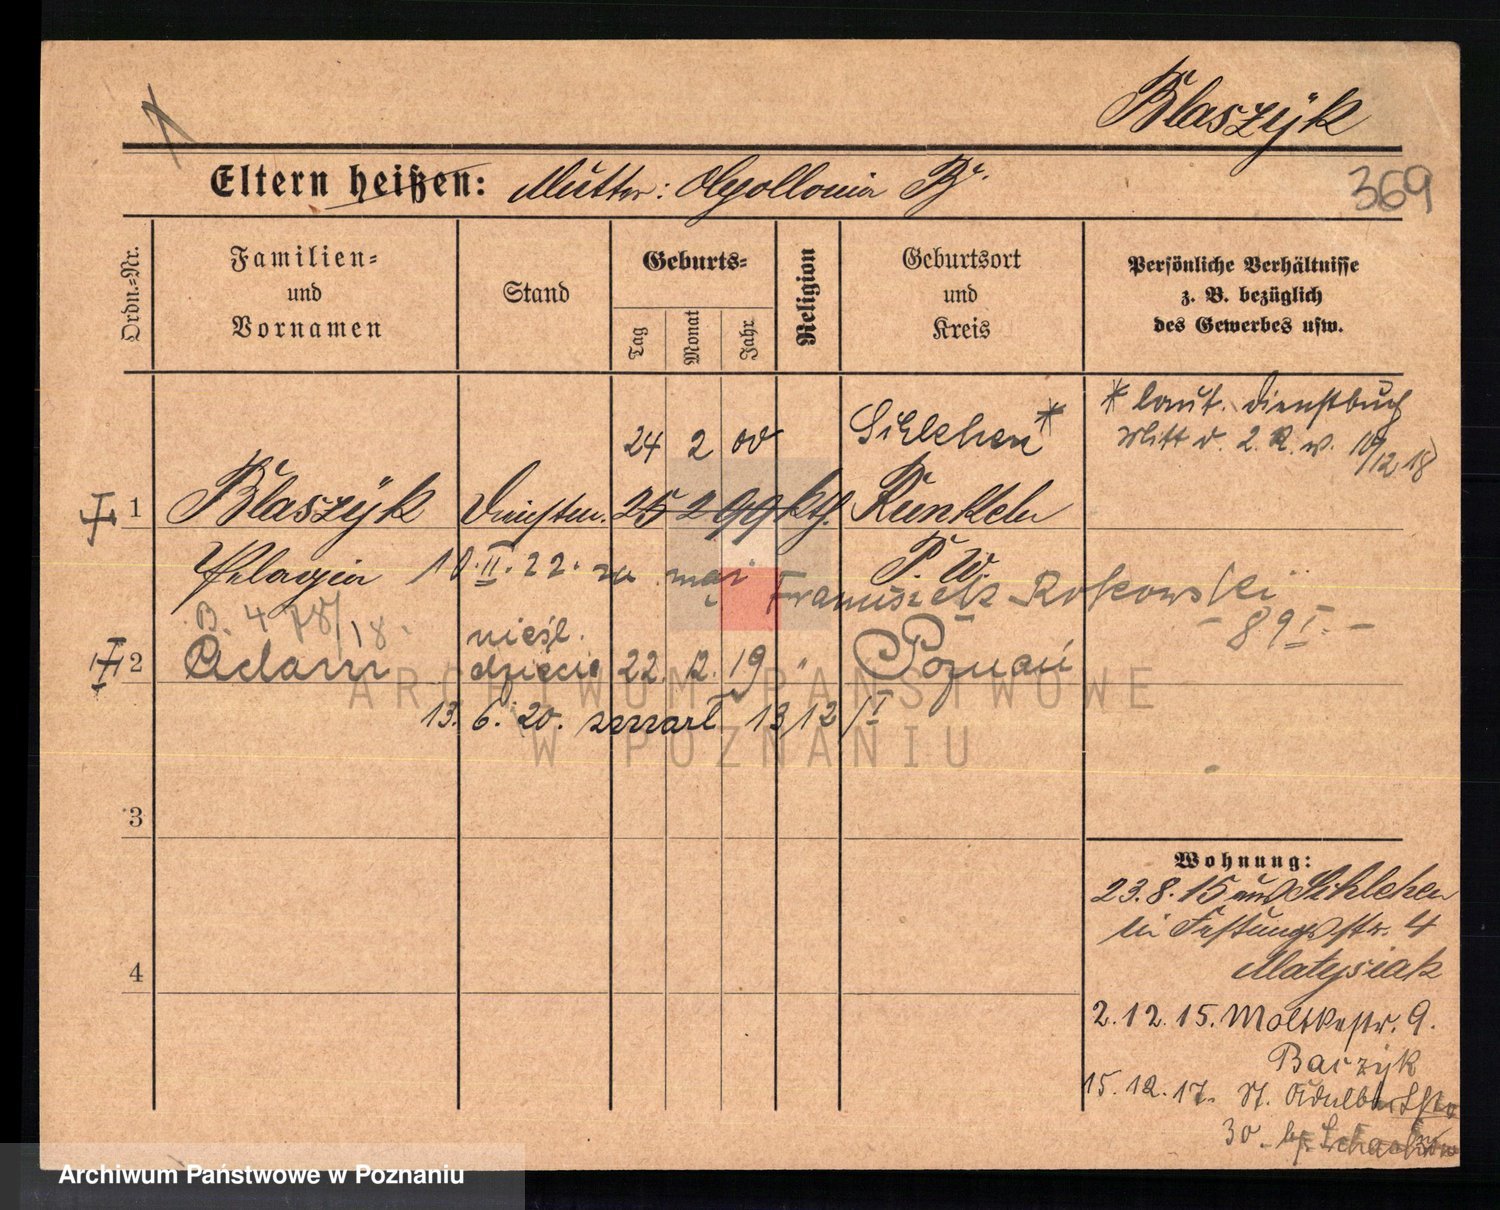 Blaszÿk
Eltern heißen: Mutter: Apollonia B.
369
Ordn.-Nr.
Familien-
und
Vornamen
Stand
Geburts-
Tag
Monat
Jahr
Religion
Geburtsort
und
Kreis
Persönliche Verhältnisse
z. B. bezüglich
des Gewerbes usw.
24 2 00
* laut. Dienstbuch
Mitt v. 2. R. v. 10/12 18
1 Blaszÿk 25 2 99 ktl.
Pelagia 10. II. 22. za mąż Franciszek Rokowski
P. W.
B. 4 78/18.
- 89 I. -
nieśl.
2 Adam dziecię 22. 12. 19 " Poznań
13. 6. 20. zmarł 13/12 II
ARCHIWUM PAŃSTWOWE
W POZNANIU
3
4
Wohnung:
23.8.15 aus
in Festungsstr. 4
Matysiak
2.12.15. Moltkestr. 9.
Baczÿk
15.12.17. St. Adalbertstr
30. bei
Archiwum Państwowe w Poznaniu